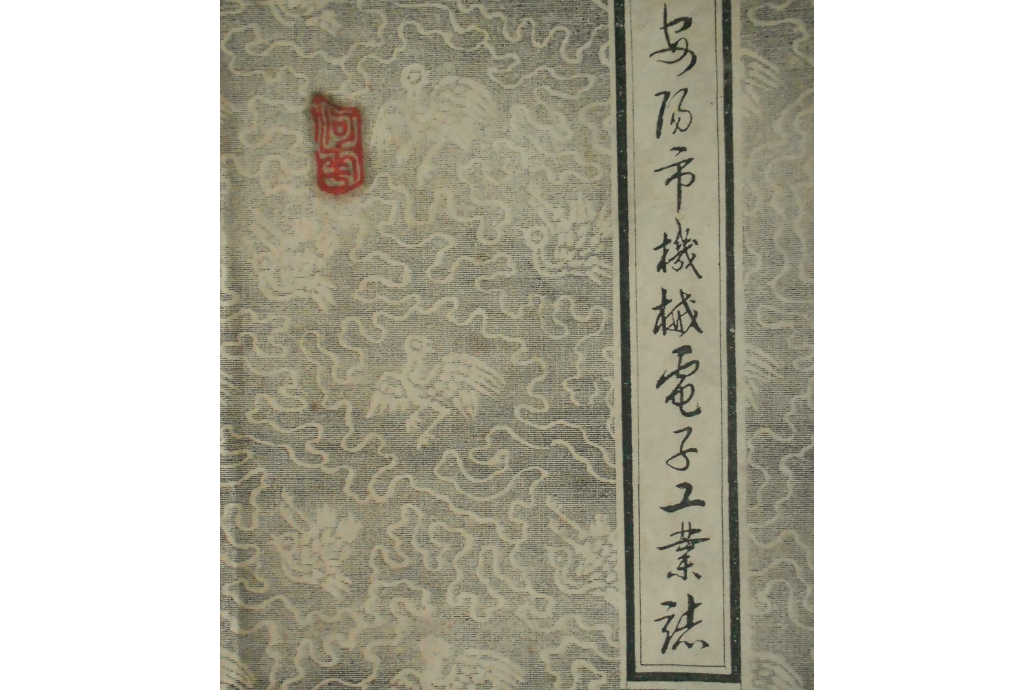 安阳市機械電子工業誌
河南